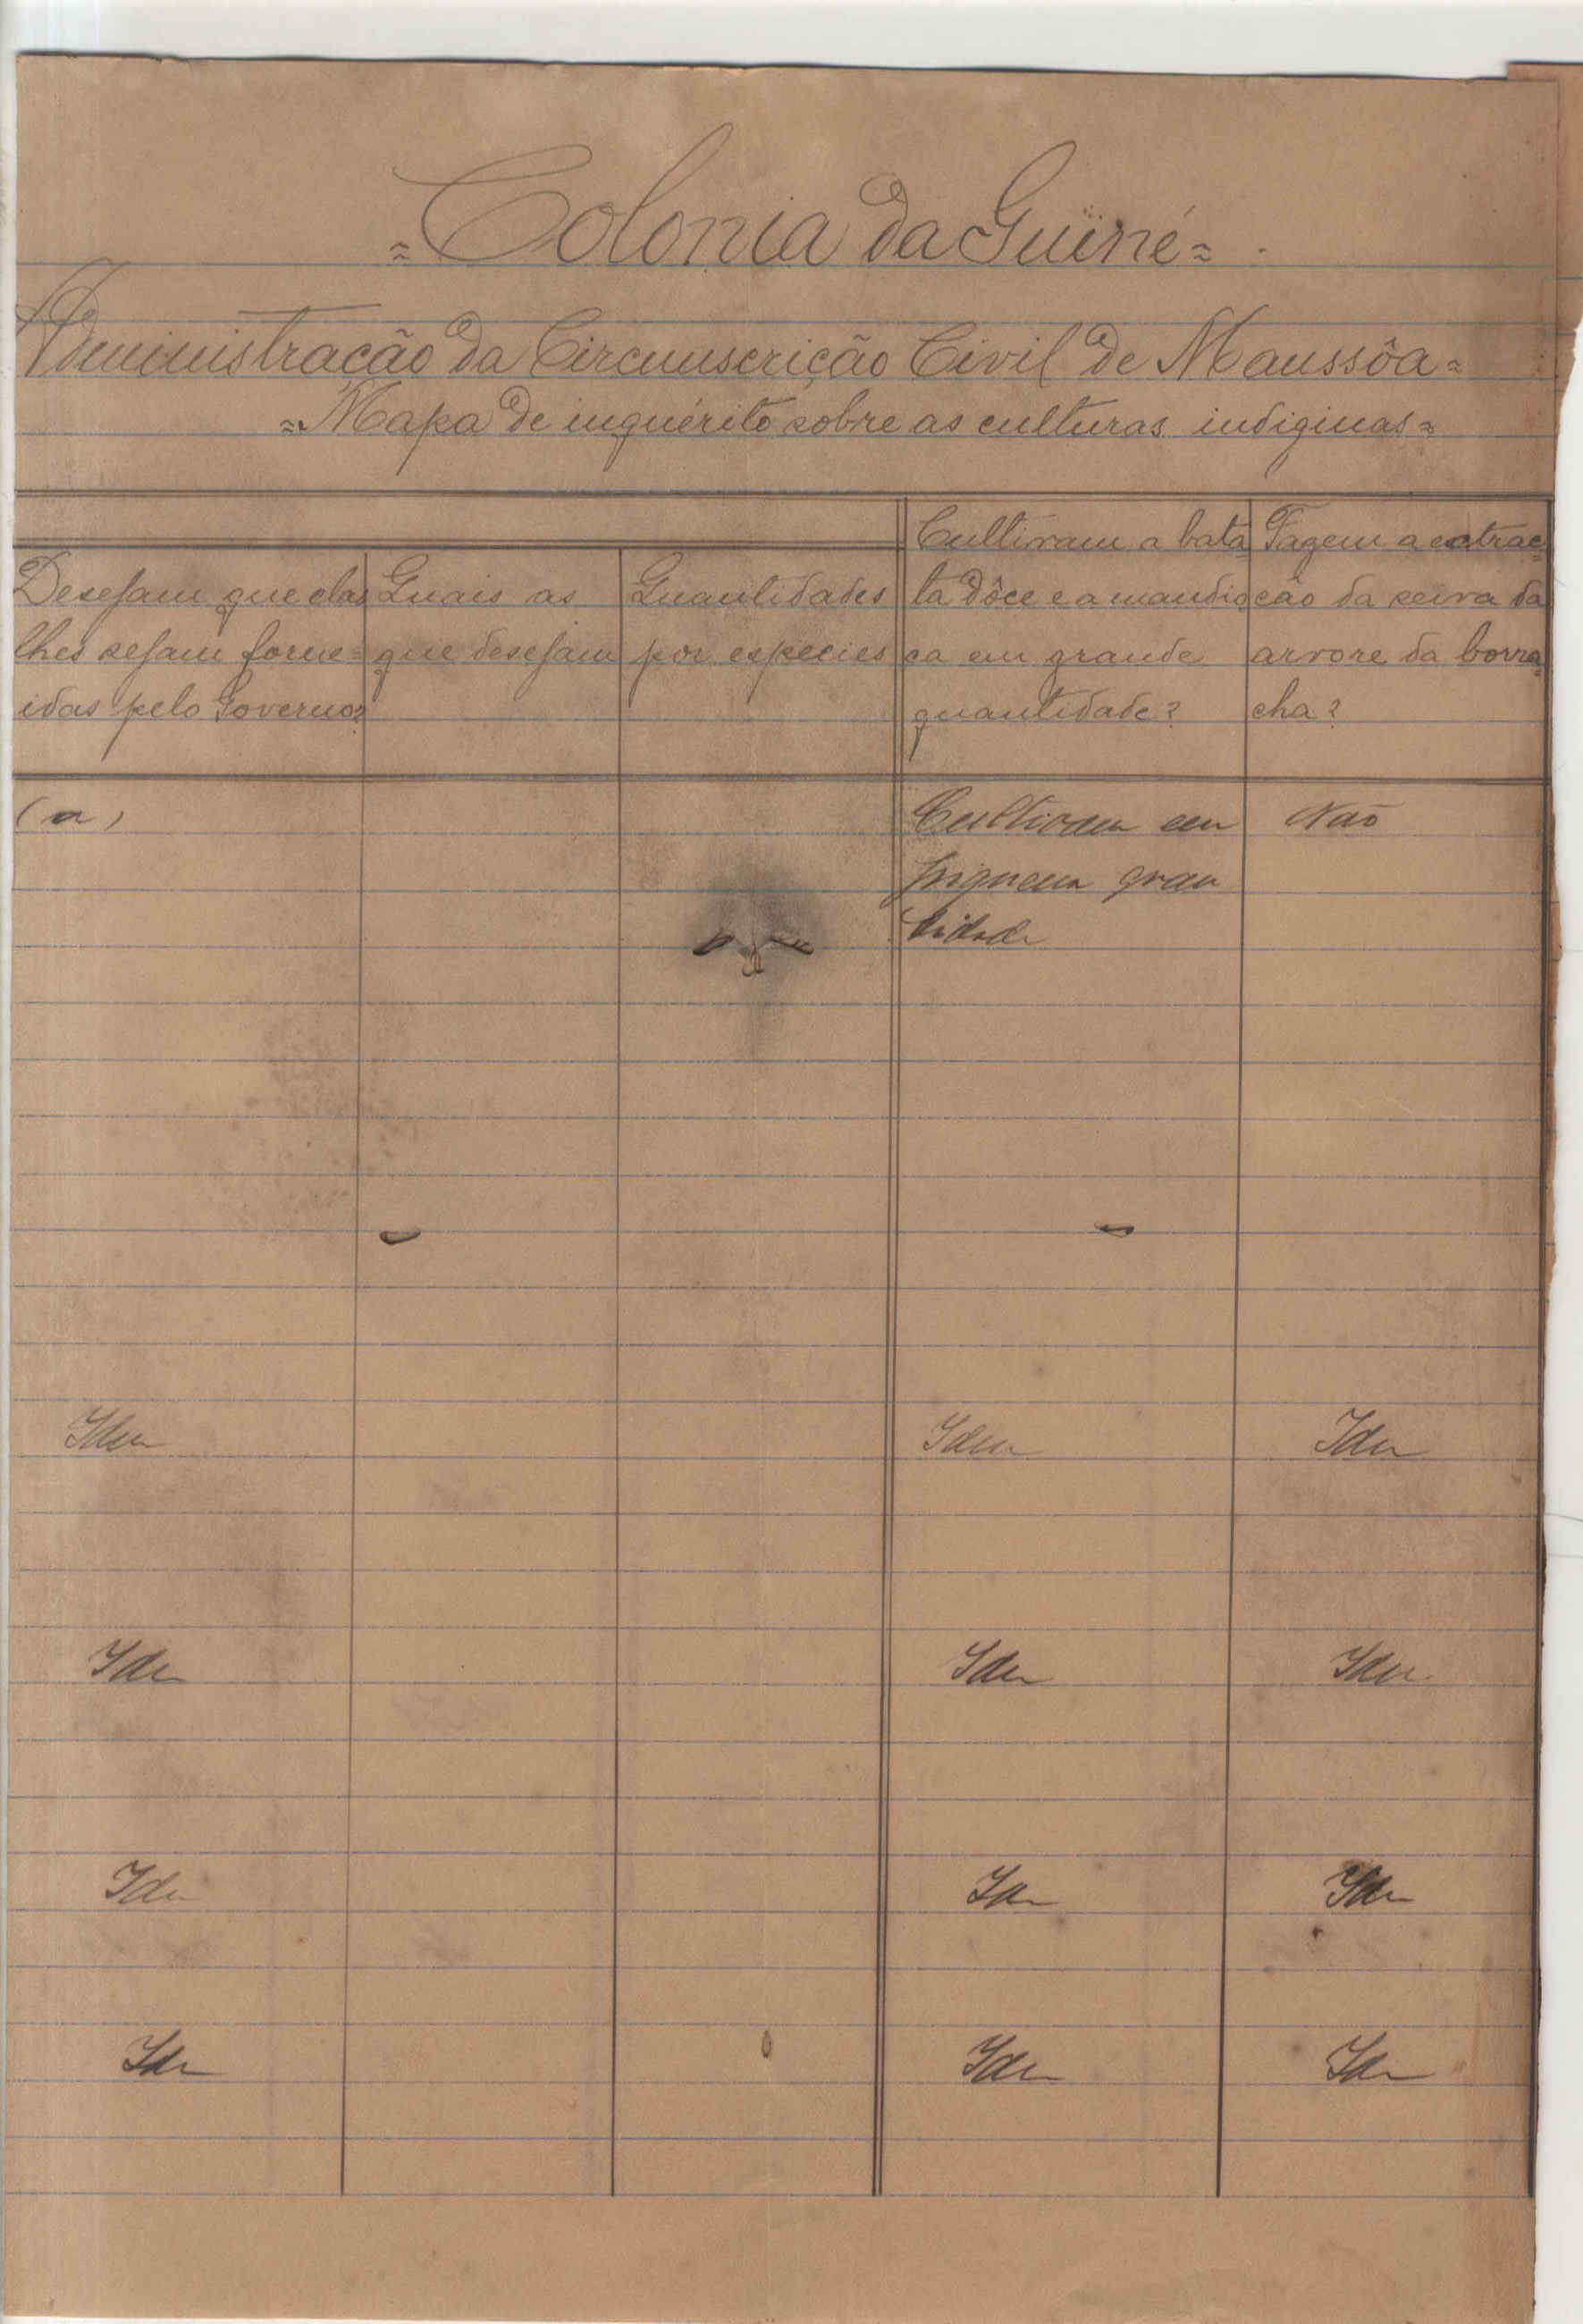 = Colonia da Guiné =
Administracão da Circunscrição Civil de Manssôa =
= Mapa de inquérito sobre as culturas indiginas =
Desejam que elas
lhes sejam forne=
idas pelo Governo?
Quais as
que desejam
Quantidades
por especies
Cultivam a bata
ta dôce e a mandio
ca em grande
quantidade?
Fazem a extrac=
cão da seiva da
arvore da borra
cha?
(a)
Cultivam em
piquena quan
tidade
Não
Idem
Idem
Idem
Idem
Idem
Idem
Idem
Idem
Idem
Idem
Idem
Idem